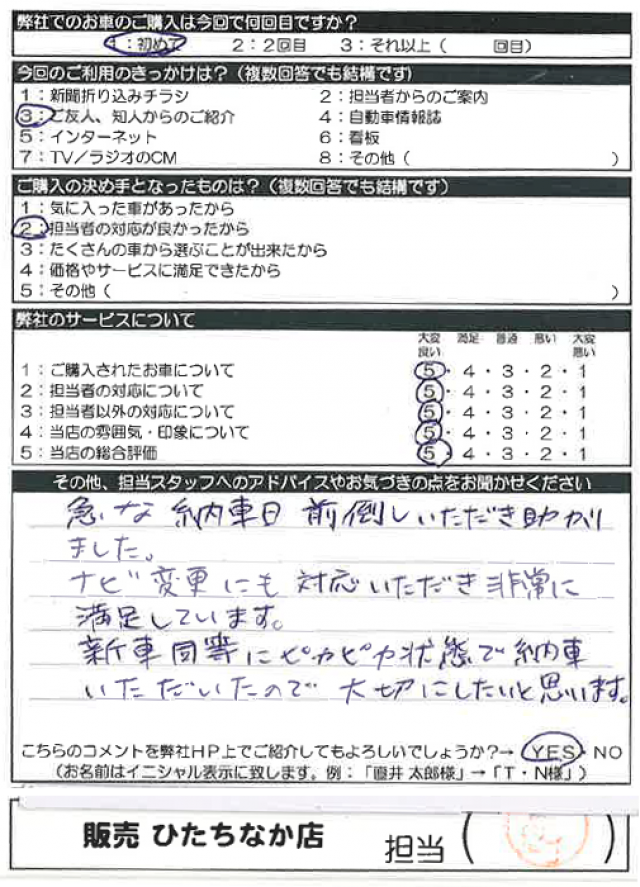 弊社でのお車のご購入は今回で何回目ですか？
1：初めて　2：2回目　3：それ以上（　　回目）
今回のご利用のきっかけは？（複数回答でも結構です）
1：新聞折り込みチラシ　2：担当者からのご案内
3：ご友人、知人からのご紹介　4：自動車情報誌
5：インターネット　6：看板
7：TV／ラジオのCM　8：その他（　　）
ご購入の決め手となったものは？（複数回答でも結構です）
1：気に入った車があったから
2：担当者の対応が良かったから
3：たくさんの車から選ぶことが出来たから
4：価格やサービスに満足できたから
5：その他（　　）
弊社のサービスについて
大変良い　満足　普通　悪い　大変悪い
1：ご購入されたお車について　5・4・3・2・1
2：担当者の対応について　5・4・3・2・1
3：担当者以外の対応について　5・4・3・2・1
4：当店の雰囲気・印象について　5・4・3・2・1
5：当店の総合評価　5・4・3・2・1
その他、担当スタッフへのアドバイスやお気づきの点をお聞かせください
急な納車日前倒しいただき助かり
ました。
ナビ変更にも対応いただき非常に
満足しています。
新車同等にピカピカ状態で納車
いただいたので大切にしたいと思います。
こちらのコメントを弊社HP上でご紹介してもよろしいでしょうか？→ YES・NO
（お名前はイニシャル表示に致します。例：「直井 太郎様」→「T・N様」）
販売 ひたちなか店　担当（　　）